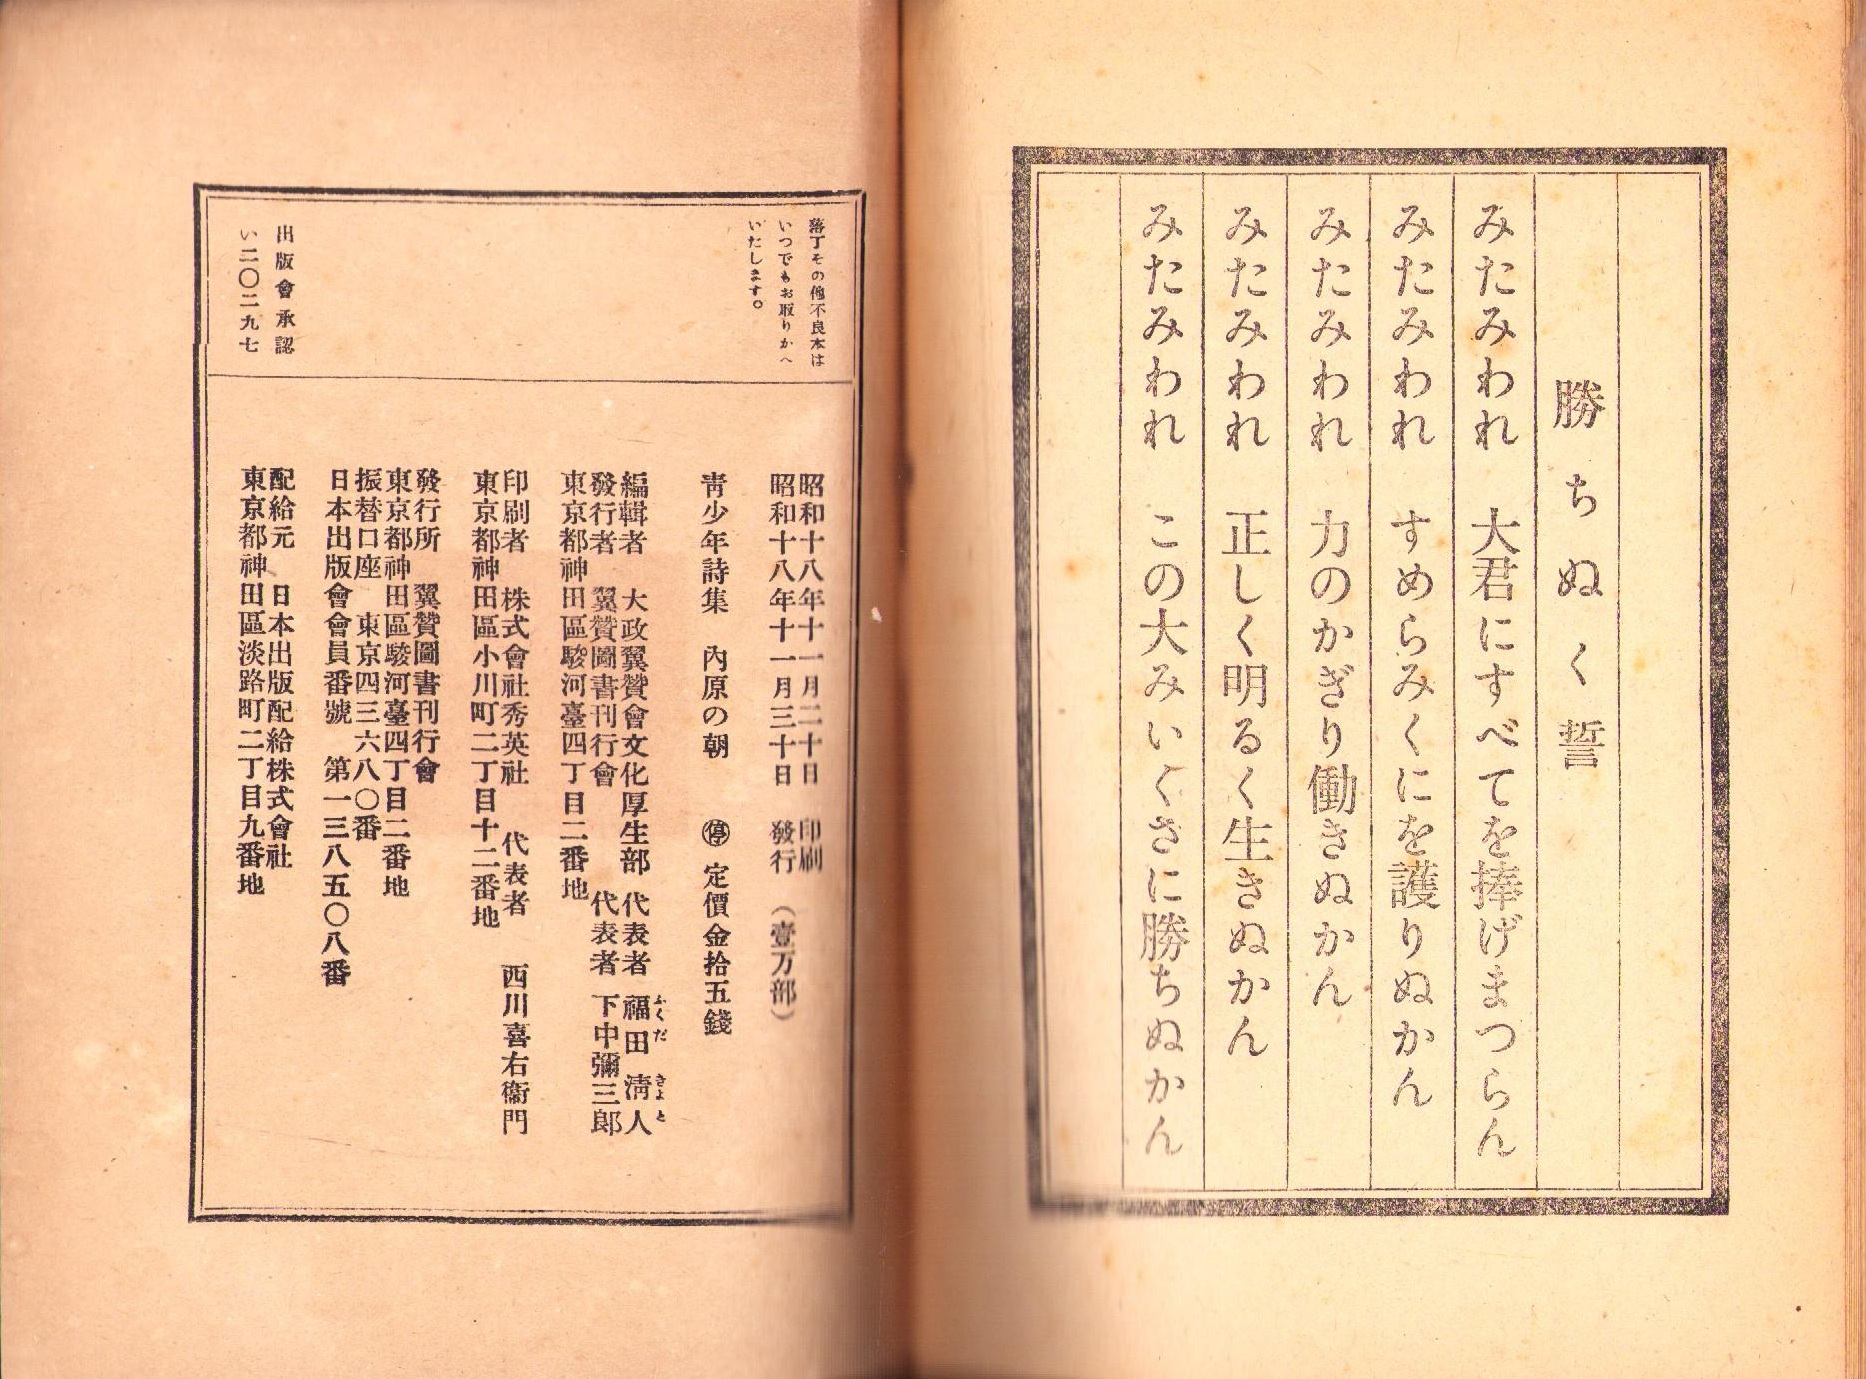 勝ちぬく誓
みたみわれ　大君にすべてを捧げまつらん
みたみわれ　すめらみくにを護りぬかん
みたみわれ　力のかぎり働きぬかん
みたみわれ　正しく明るく生きぬかん
みたみわれ　この大みいくさに勝ちぬかん
落丁その他不良本は
いつでもお取りかへ
いたします。
出版會承認
い二〇二九七
昭和十八年十一月二十日　印刷
昭和十八年十一月三十日　發行　（壹万部）
靑少年詩集　內原の朝　㊡　定價金拾五錢
編輯者　大政翼贊會文化厚生部　代表者　福田淸人
ふくだ　きよと
發行者　翼贊圖書刊行會　代表者　下中彌三郎
東京都神田區駿河臺四丁目二番地
印刷者　株式會社秀英社　代表者　西川喜右衞門
東京都神田區小川町二丁目十二番地
發行所　翼贊圖書刊行會
東京都神田區駿河臺四丁目二番地
振替口座　東京四三六八〇番
日本出版會會員番號　第一三八五〇八番
配給元　日本出版配給株式會社
東京都神田區淡路町二丁目九番地